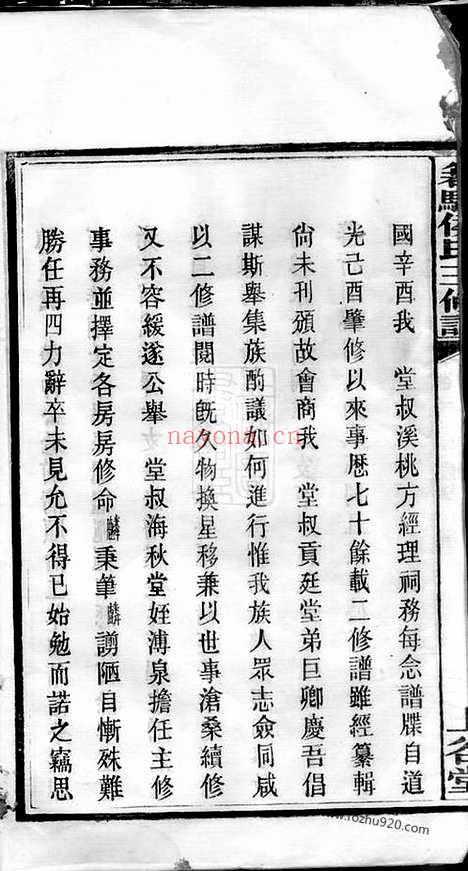 國辛酉我　堂叔溪桃方經理祠務每念譜牒自道
光己酉肇修以來事歷七十餘載二修譜雖經纂輯
尙未刊頒故會商我　堂叔貢廷堂弟巨卿慶吾倡
謀斯舉集族酌議如何進行惟我族人眾志僉同咸
以二修譜閱時旣久物換星移兼以世事滄桑續修
又不容緩遂公舉　堂叔海秋堂姪溥泉擔任主修
事務並擇定各房房修命麟秉筆麟謭陋自慚殊難
勝任再四力辭卒未見允不得已始勉而諾之竊思
侯氏三修譜
上谷堂
nayona.cn
www.rozhu920.com